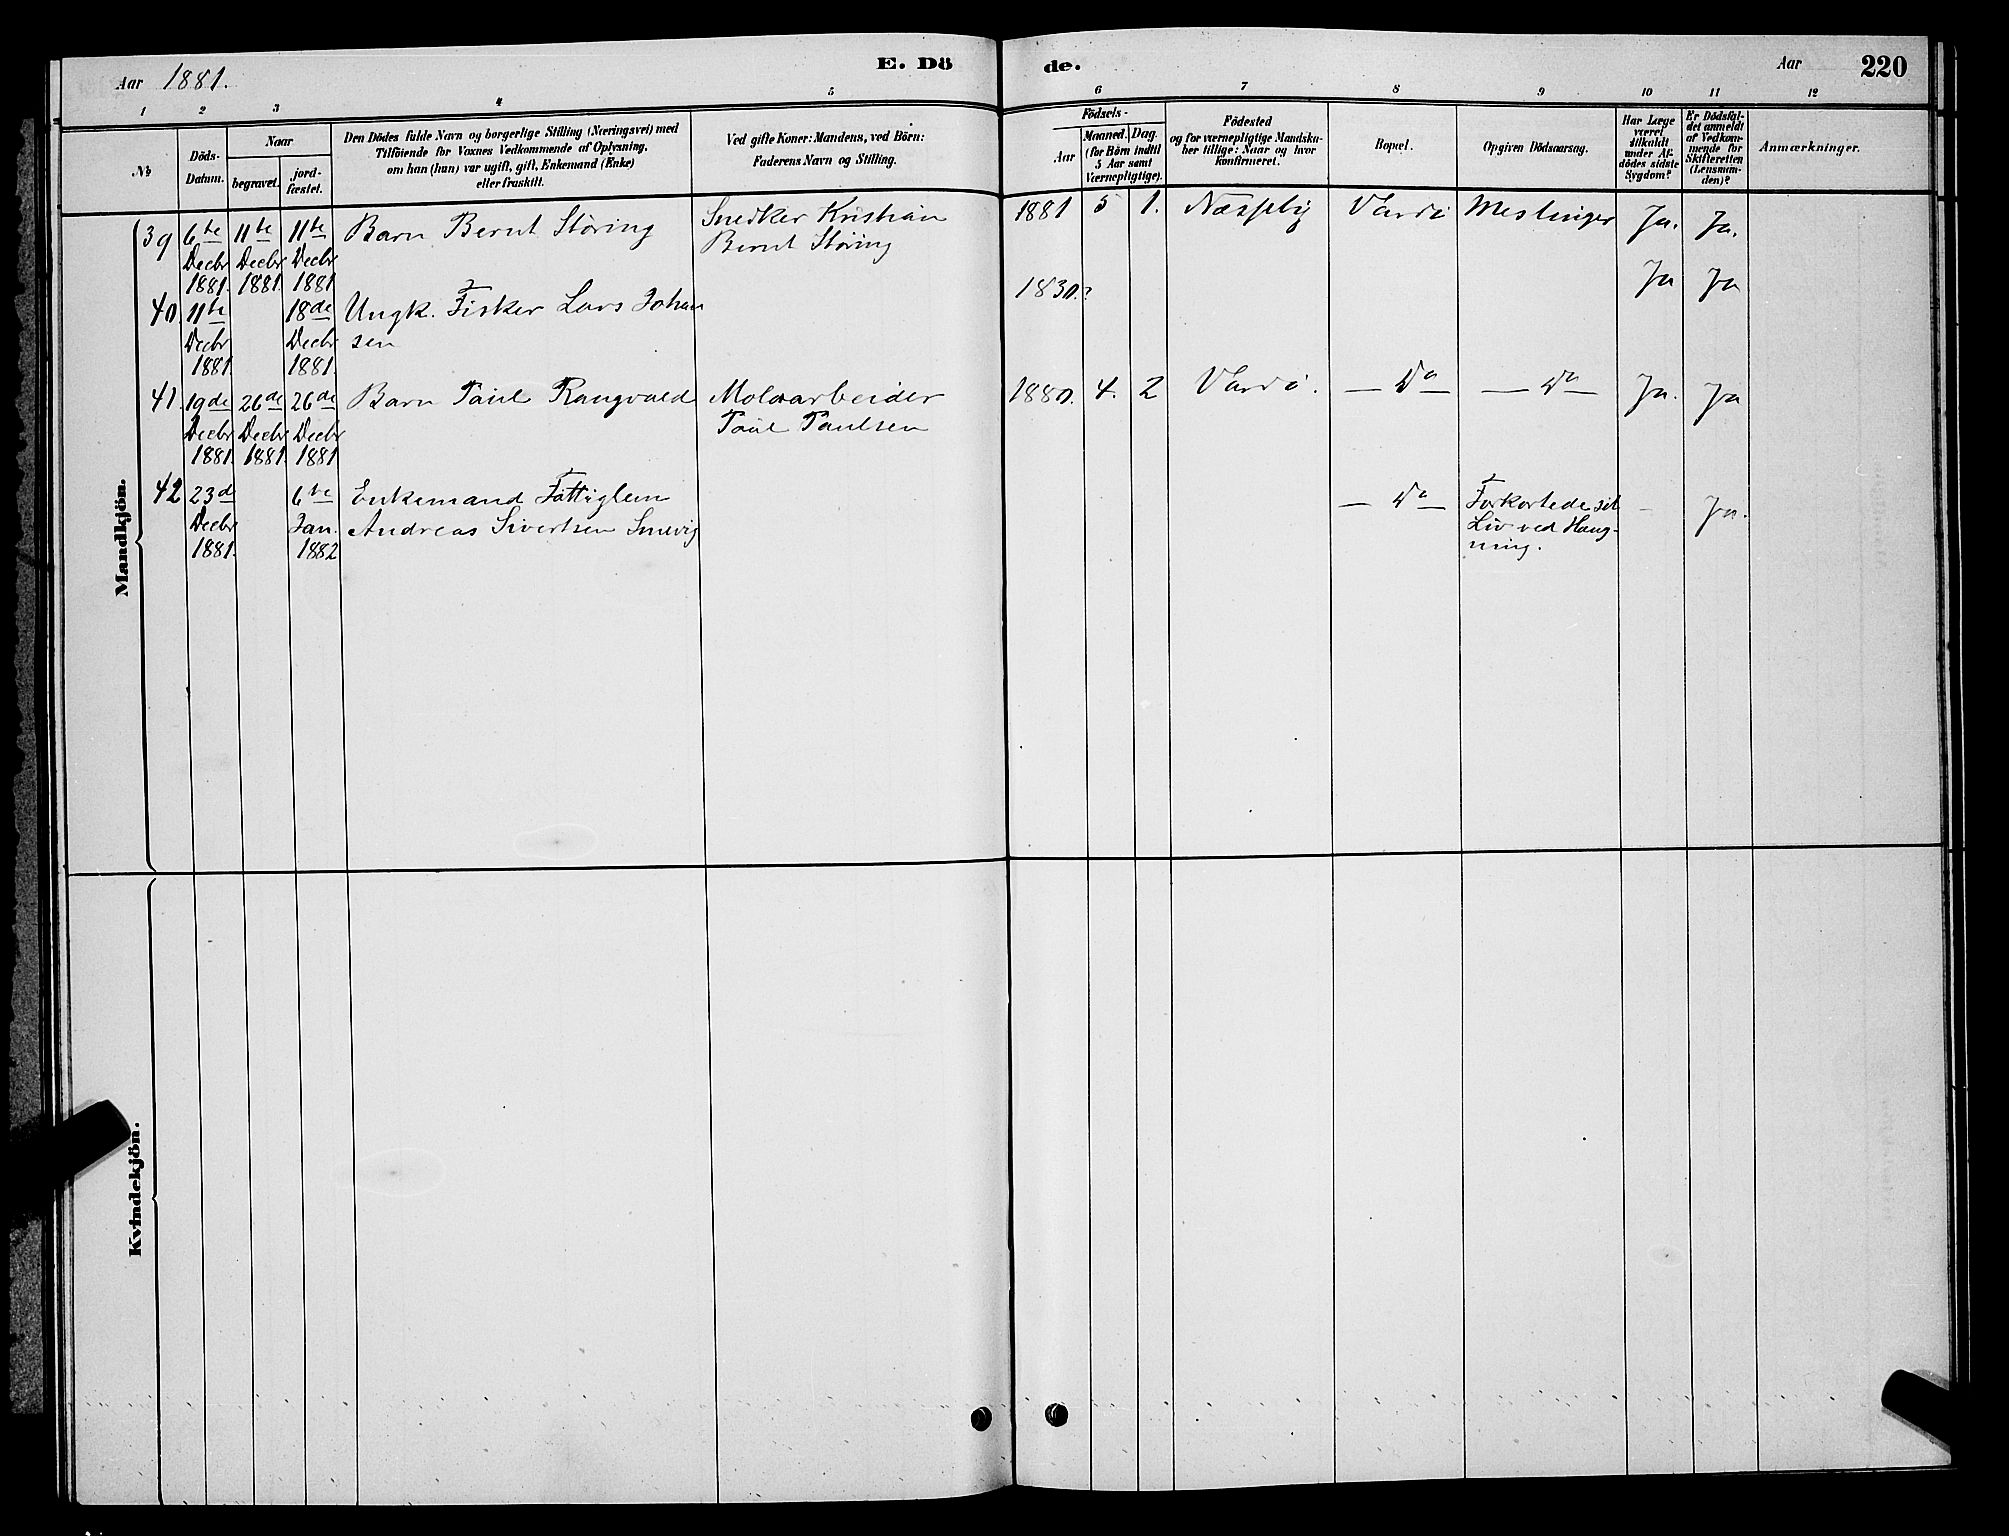 Aar 1881.
E. Dö
de.
Aar
220
1 2 3 4 5 6 7 8 9 10 11 12
No
Döds-
Datum.
Naar
begravet.
jord-
fæstet.
Den Dödes fulde Navn og borgerlige Stilling (Næringsvei) med
Tilföiende for Voxnes Vedkommende af Oplysning,
om han (hun) var ugift, gift, Enkemand (Enke)
eller fraskilt.
Ved gifte Koner: Mandens, ved Börn:
Faderens Navn og Stilling.
Födsels-
Aar
Maaned. Dag.
(for Börn indtil
5 Aar samt
Værnepligtige).
Födested
og for værnepligtige Mandska-
ber tillige: Naar og hvor
konfirmeret.
Bopæl.
Opgiven Dödsaarsag.
Har Læge
været
tilkaldt
under Af-
dödes sidste
Sygdom?
Er Dödsfal-
det anmeldt
af Vedkom-
mende for
Skifteretten
(Lensman-
den)?
Anmærkninger.
Mandkjön.
39 6te Decbr 1881. 11te Decbr 1881 11te Decbr 1881 Barn Bernt Störing
Snedker Kristian
Bernt Störing
1881 5 1. Næsseby Vardö Meslinger Ja. Ja.
40. 11te Decbr 1881. 18de Decbr 1881. Ungk. Fisker Lars Johan
sen
1830.? Ja Ja
41. 19de Decbr 1881. 26de Decbr 1881. 26de Decbr 1881 Barn Paul Rangvald
Moloarbeider
Paul Paulsen
1880. 4. 2 Vardö. — Do — — Do — Ja. Ja
42 23d Decbr 1881. 6te Jan. 1882 Enkemand Fattiglem
Andreas Sivertsen Smevig
— Do — Forkortede sit
Liv ved Hæng-
ning.
- Ja.
Kvindekjön.